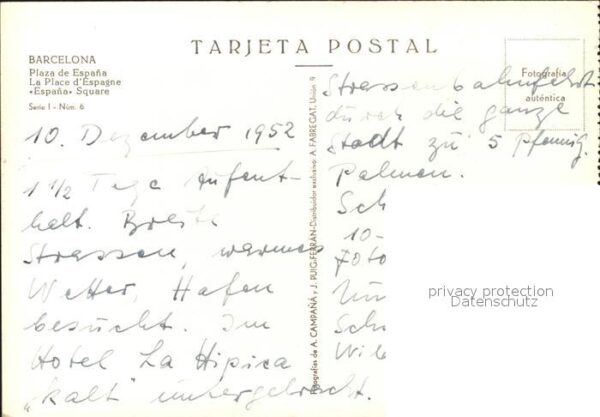 TARJETA POSTAL
BARCELONA
Plaza de España
La Place d'Espagne
«España» Square
Serie I - Núm. 6
Fotografía
auténtica
10. Dezember 1952
1 1/2 Tage Aufent-
halt. Breite
Strassen, warmes
Wetter, Hafen
besucht. Im
Hotel La Hipica
"kalt" untergebracht.
Fotografías de A. CAMPAÑÁ y J. PUIG-FERRÁN-Distribuidor exclusivo: A. FABREGAT, Unión 9
Strassenbahnfahrt
durch die ganze
Stadt zu 5 Pfennig.
Palmen.
Sch
10-
Foto
Sch
privacy protection
Datenschutz